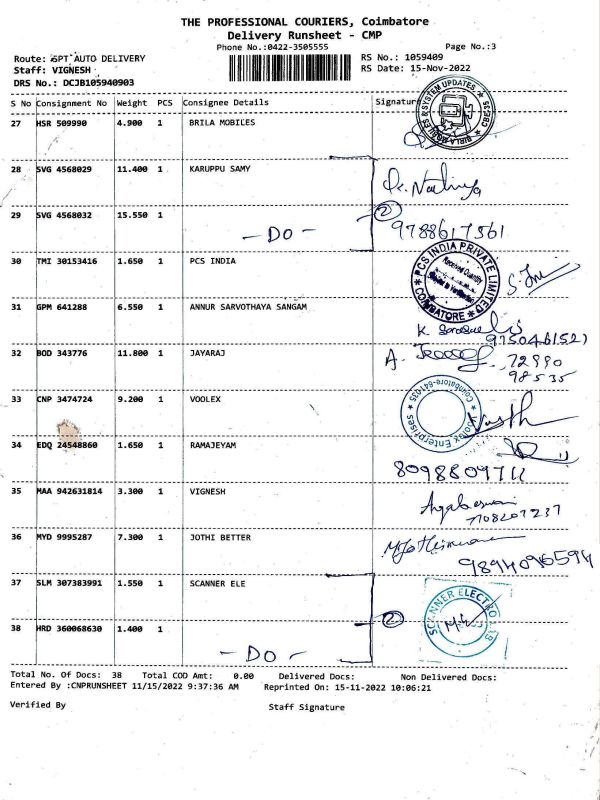 THE PROFESSIONAL COURIERS, Coimbatore
Delivery Runsheet - CMP
Phone No.:0422-3505555
Page No.:3
Route: GPT AUTO DELIVERY
RS No.: 1059409
Staff: VIGNESH
RS Date: 15-Nov-2022
DRS No.: DCJB105940903
S No Consignment No Weight PCS Consignee Details Signature
27 HSR 509990 4.900 1 BRILA MOBILES
BIRLA MOBILES & SYSTEM UPDATES CBE-35
28 SVG 4568029 11.400 1 KARUPPU SAMY
29 SVG 4568032 15.550 1 - DO - 2
9788617561
30 TMI 30153416 1.650 1 PCS INDIA
PCS INDIA PRIVATE LIMITED COIMBATORE
31 GPM 641288 6.550 1 ANNUR SARVOTHAYA SANGAM
32 BOD 343776 11.800 1 JAYARAJ
A. 72990
98535
33 CNP 3474724 9.200 1 VOOLEX
Voolex Enterprises Coimbatore-641035
34 EDQ 24548860 1.650 1 RAMAJEYAM
8098809711
35 MAA 942631814 3.300 1 VIGNESH
7708207237
36 MYD 9995287 7.300 1 JOTHI BETTER
9894096594
37 SLM 307383991 1.550 1 SCANNER ELE
SCANNER ELECTRO
38 HRD 360068630 1.400 1 - DO - 2
Total No. Of Docs: 38 Total COD Amt: 0.00 Delivered Docs: Non Delivered Docs:
Entered By :CNPRUNSHEET 11/15/2022 9:37:36 AM Reprinted On: 15-11-2022 10:06:21
Verified By Staff Signature